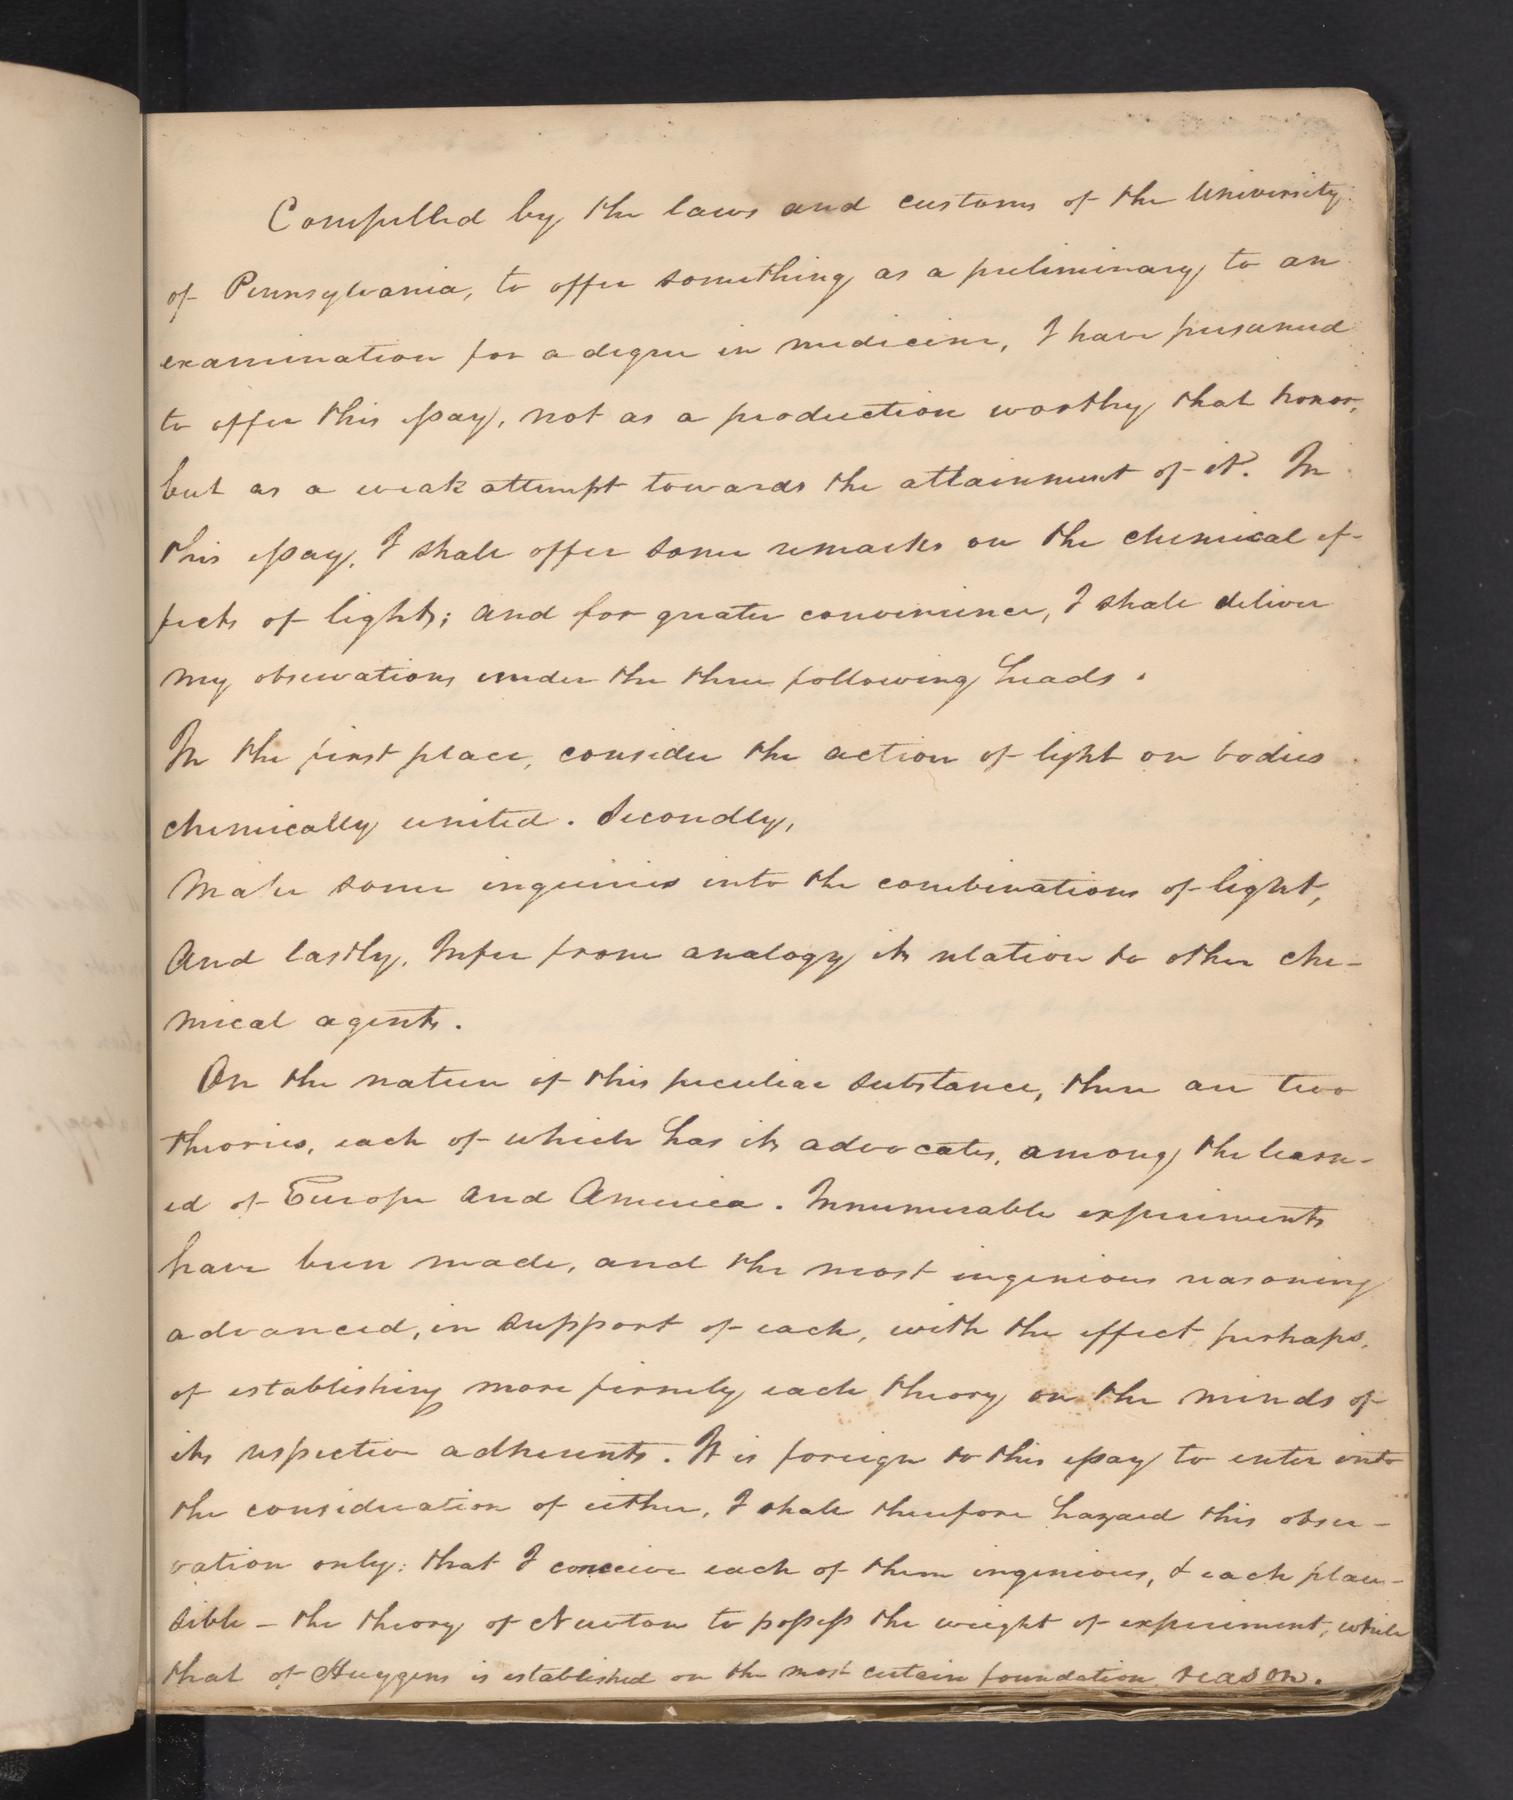 Compelled by the laws and customs of the University
of Pennsylvania, to offer something as a preliminary to an
examination for a degree in medicine, I have presumed
to offer this essay, not as a production worthy that honor,
but as a weak attempt towards the attainment of it. In
this essay, I shall offer some remarks on the chemical ef-
fects of light; and for greater convenience, I shall deliver
my observations under the three following heads.
In the first place, consider the action of light on bodies
chemically united. Secondly,
Make some inquiries into the combinations of light,
And lastly, Infer from analogy its relation to other che-
mical agents.
On the nature of this peculiar substance, there are two
theories, each of which has its advocates, among the learn-
ed of Europe and America. Innumerable experiments
have been made, and the most ingenious reasoning
advanced, in support of each, with the effect perhaps,
of establishing more firmly each theory on the minds of
its respective adherents. It is foreign to this essay to enter into
the consideration of either, I shall therefore hazard this obser-
vation only: that I conceive each of them ingenious, & each plau-
sible - the theory of Newton to possess the weight of experiment, while
that of Huygens is established on the most certain foundation reason.